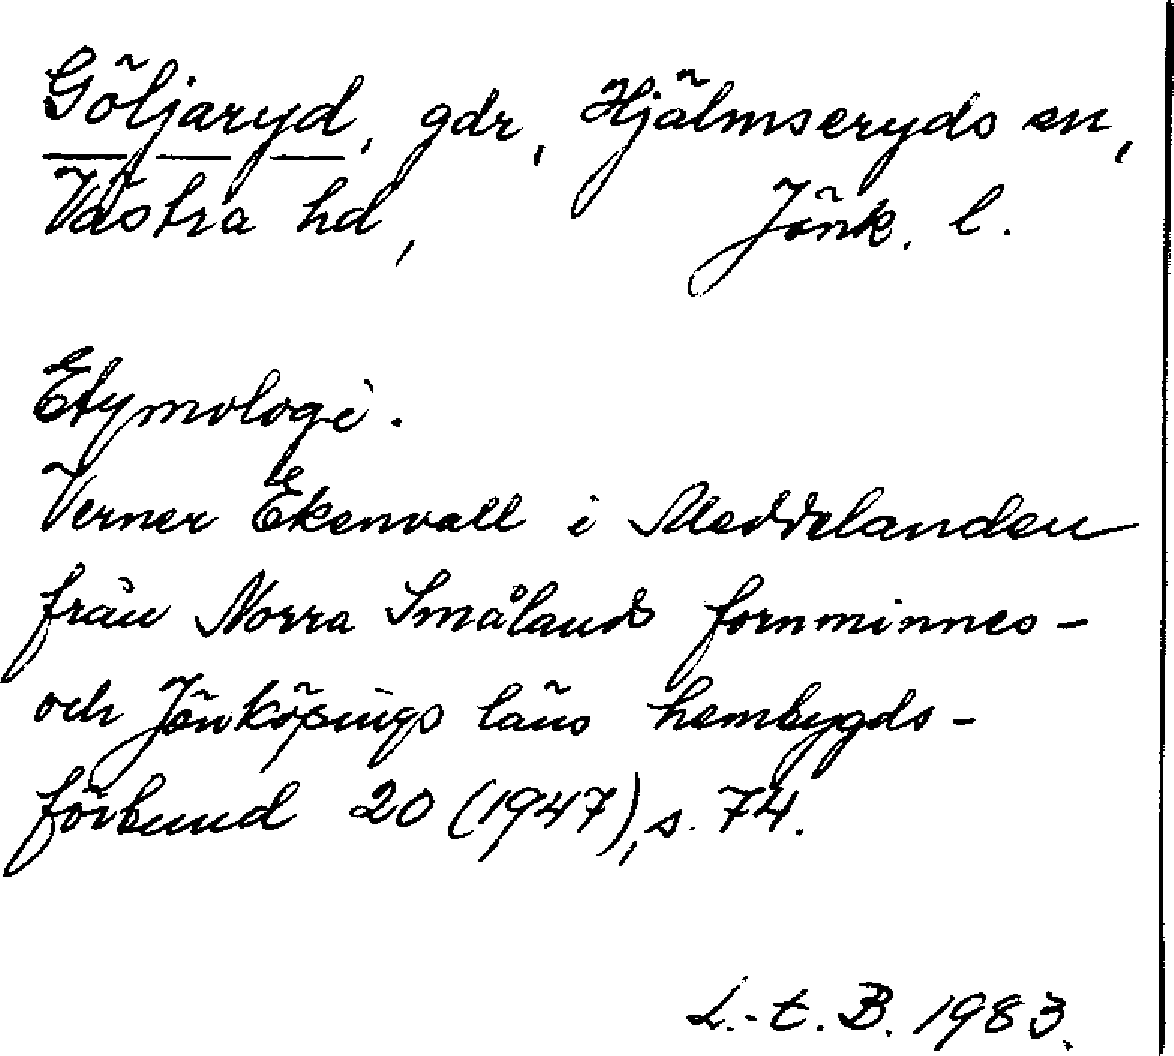 Göljaryd, gdr, Hjälmseryds sn,
Västra hd, Jönk. l.
Etymologi.
Verner Ekenvall i Meddelanden
från Norra Smålands fornminnes-
och Jönköpings läns hembygds-
förbund 20 (1947), s. 74.
L.-t. B. 1983.